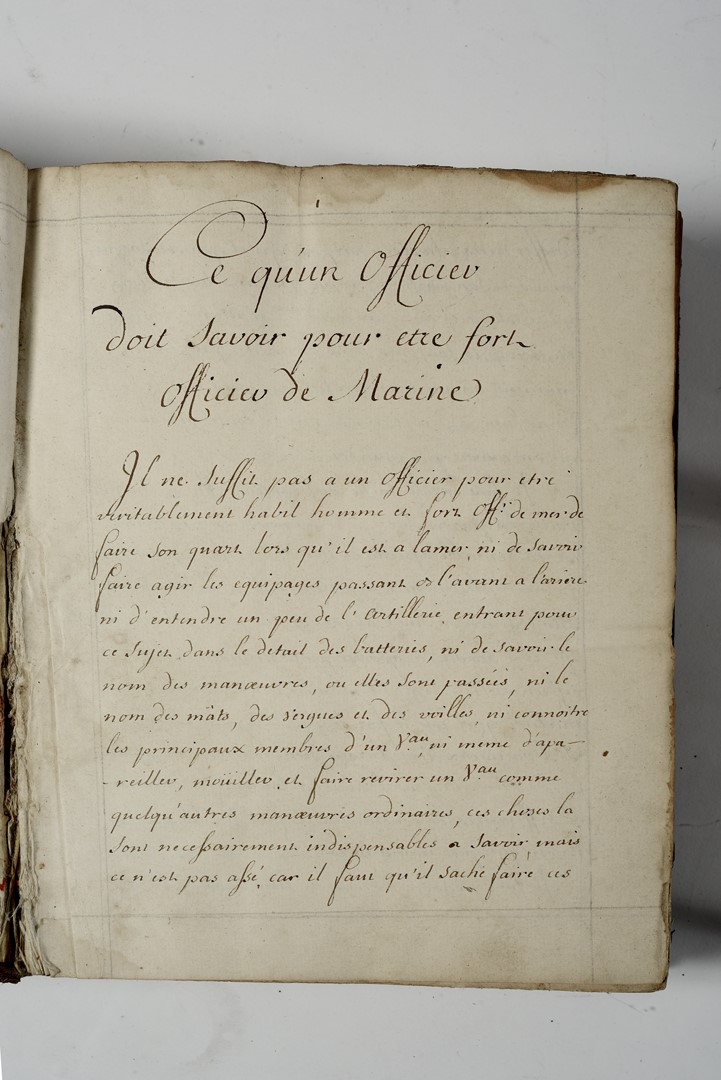 Ce qu'un Officier
doit savoir pour etre fort
Officier de Marine
Il ne suffit pas a un officier pour etre
veritablement habil homme et fort Off.r de mer de
faire son quart lors qu'il est a la mer, ni de savoir
faire agir les equipages passant de l'avant a l'ariere
ni d'entendre un peu de l'artillerie, entrant pour
ce sujet dans le detail des batteries, ni de savoir le
nom des manœuvres, ou elles sont passées, ni le
nom des mâts, des vergues et des voilles, ni connoitre
les principaux membres d'un V.au, ni meme d'apa-
-reiller, moüiller et faire revirer un V.au comme
quelqu'autres manœuvres ordinaires, ces choses la
sont necessairement indispensables a savoir mais
ce n'est pas assé, car il faut qu'il sache faire ces